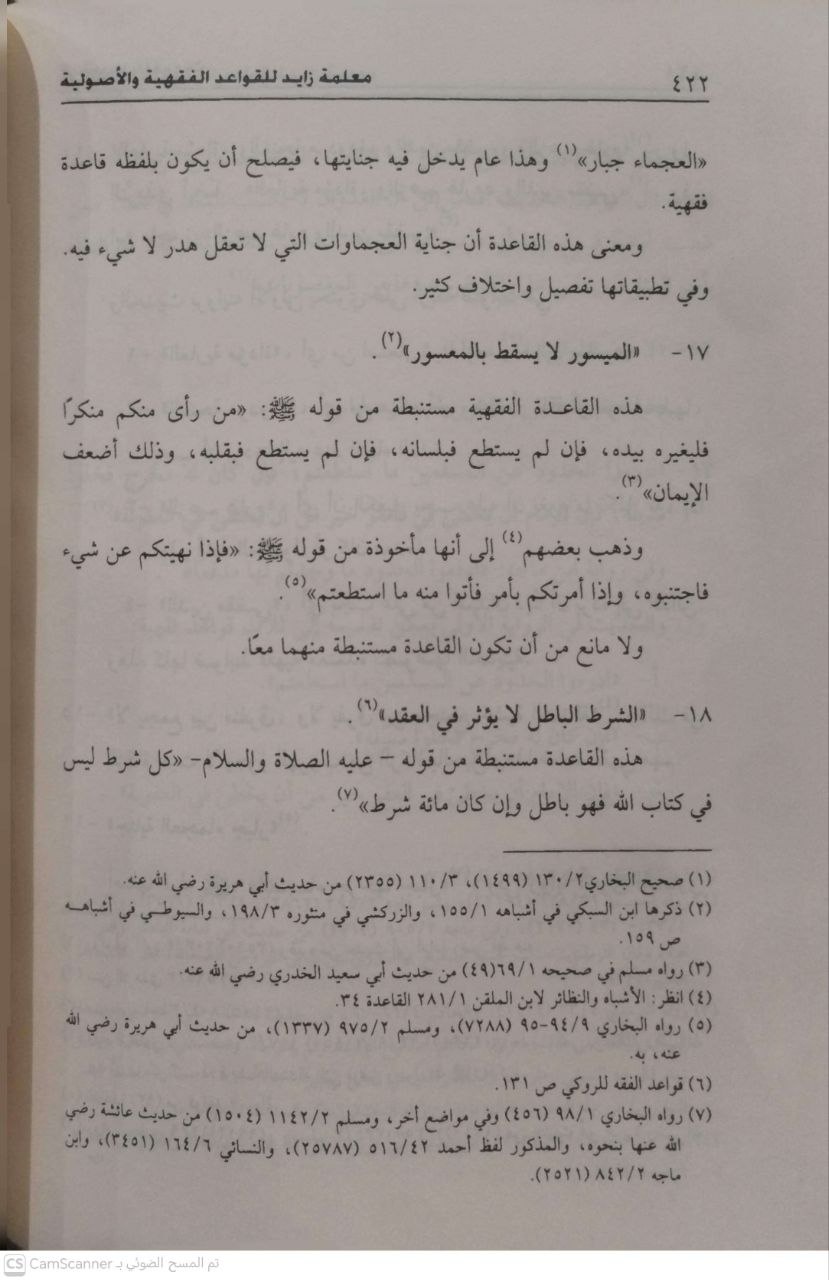 ٤٢٢ معلمة زايد للقواعد الفقهية والأصولية
«العجماء جبار»(١) وهذا عام يدخل فيه جنايتها، فيصلح أن يكون بلفظه قاعدة
فقهية.
ومعنى هذه القاعدة أن جناية العجماوات التي لا تعقل هدر لا شيء فيه.
وفي تطبيقاتها تفصيل واختلاف كثير.
١٧- «الميسور لا يسقط بالمعسور»(٢).
هذه القاعدة الفقهية مستنبطة من قوله ﷺ: «من رأى منكم منكرًا
فليغيره بيده، فإن لم يستطع فبلسانه، فإن لم يستطع فبقلبه، وذلك أضعف
الإيمان»(٣).
وذهب بعضهم(٤) إلى أنها مأخوذة من قوله ﷺ: «فإذا نهيتكم عن شيء
فاجتنبوه، وإذا أمرتكم بأمر فأتوا منه ما استطعتم»(٥).
ولا مانع من أن تكون القاعدة مستنبطة منهما معًا.
١٨- «الشرط الباطل لا يؤثر في العقد»(٦).
هذه القاعدة مستنبطة من قوله – عليه الصلاة والسلام– «كل شرط ليس
في كتاب الله فهو باطل وإن كان مائة شرط»(٧).
(١) صحيح البخاري١٣٠/٢ (١٤٩٩)، ١١٠/٣ (٢٣٥٥) من حديث أبي هريرة رضي الله عنه.
(٢) ذكرها ابن السبكي في أشباهه ١٥٥/١، والزركشي في منثوره ١٩٨/٣، والسيوطي في أشباهه
ص ١٥٩.
(٣) رواه مسلم في صحيحه ٦٩/١(٤٩) من حديث أبي سعيد الخدري رضي الله عنه.
(٤) انظر: الأشباه والنظائر لابن الملقن ٢٨١/١ القاعدة ٣٤.
(٥) رواه البخاري ٩٤/٩-٩٥ (٧٢٨٨)، ومسلم ٩٧٥/٢ (١٣٣٧)، من حديث أبي هريرة رضي الله
عنه، به.
(٦) قواعد الفقه للروكي ص ١٣١.
(٧) رواه البخاري ٩٨/١ (٤٥٦) وفي مواضع أخر، ومسلم ١١٤٢/٢ (١٥٠٤) من حديث عائشة رضي
الله عنها بنحوه، والمذكور لفظ أحمد ٥١٦/٤٢ (٢٥٧٨٧)، والنسائي ١٦٤/٦ (٣٤٥١)، وابن
ماجه ٨٤٢/٢ (٢٥٢١).
CS CamScanner تم المسح الضوئي بـ